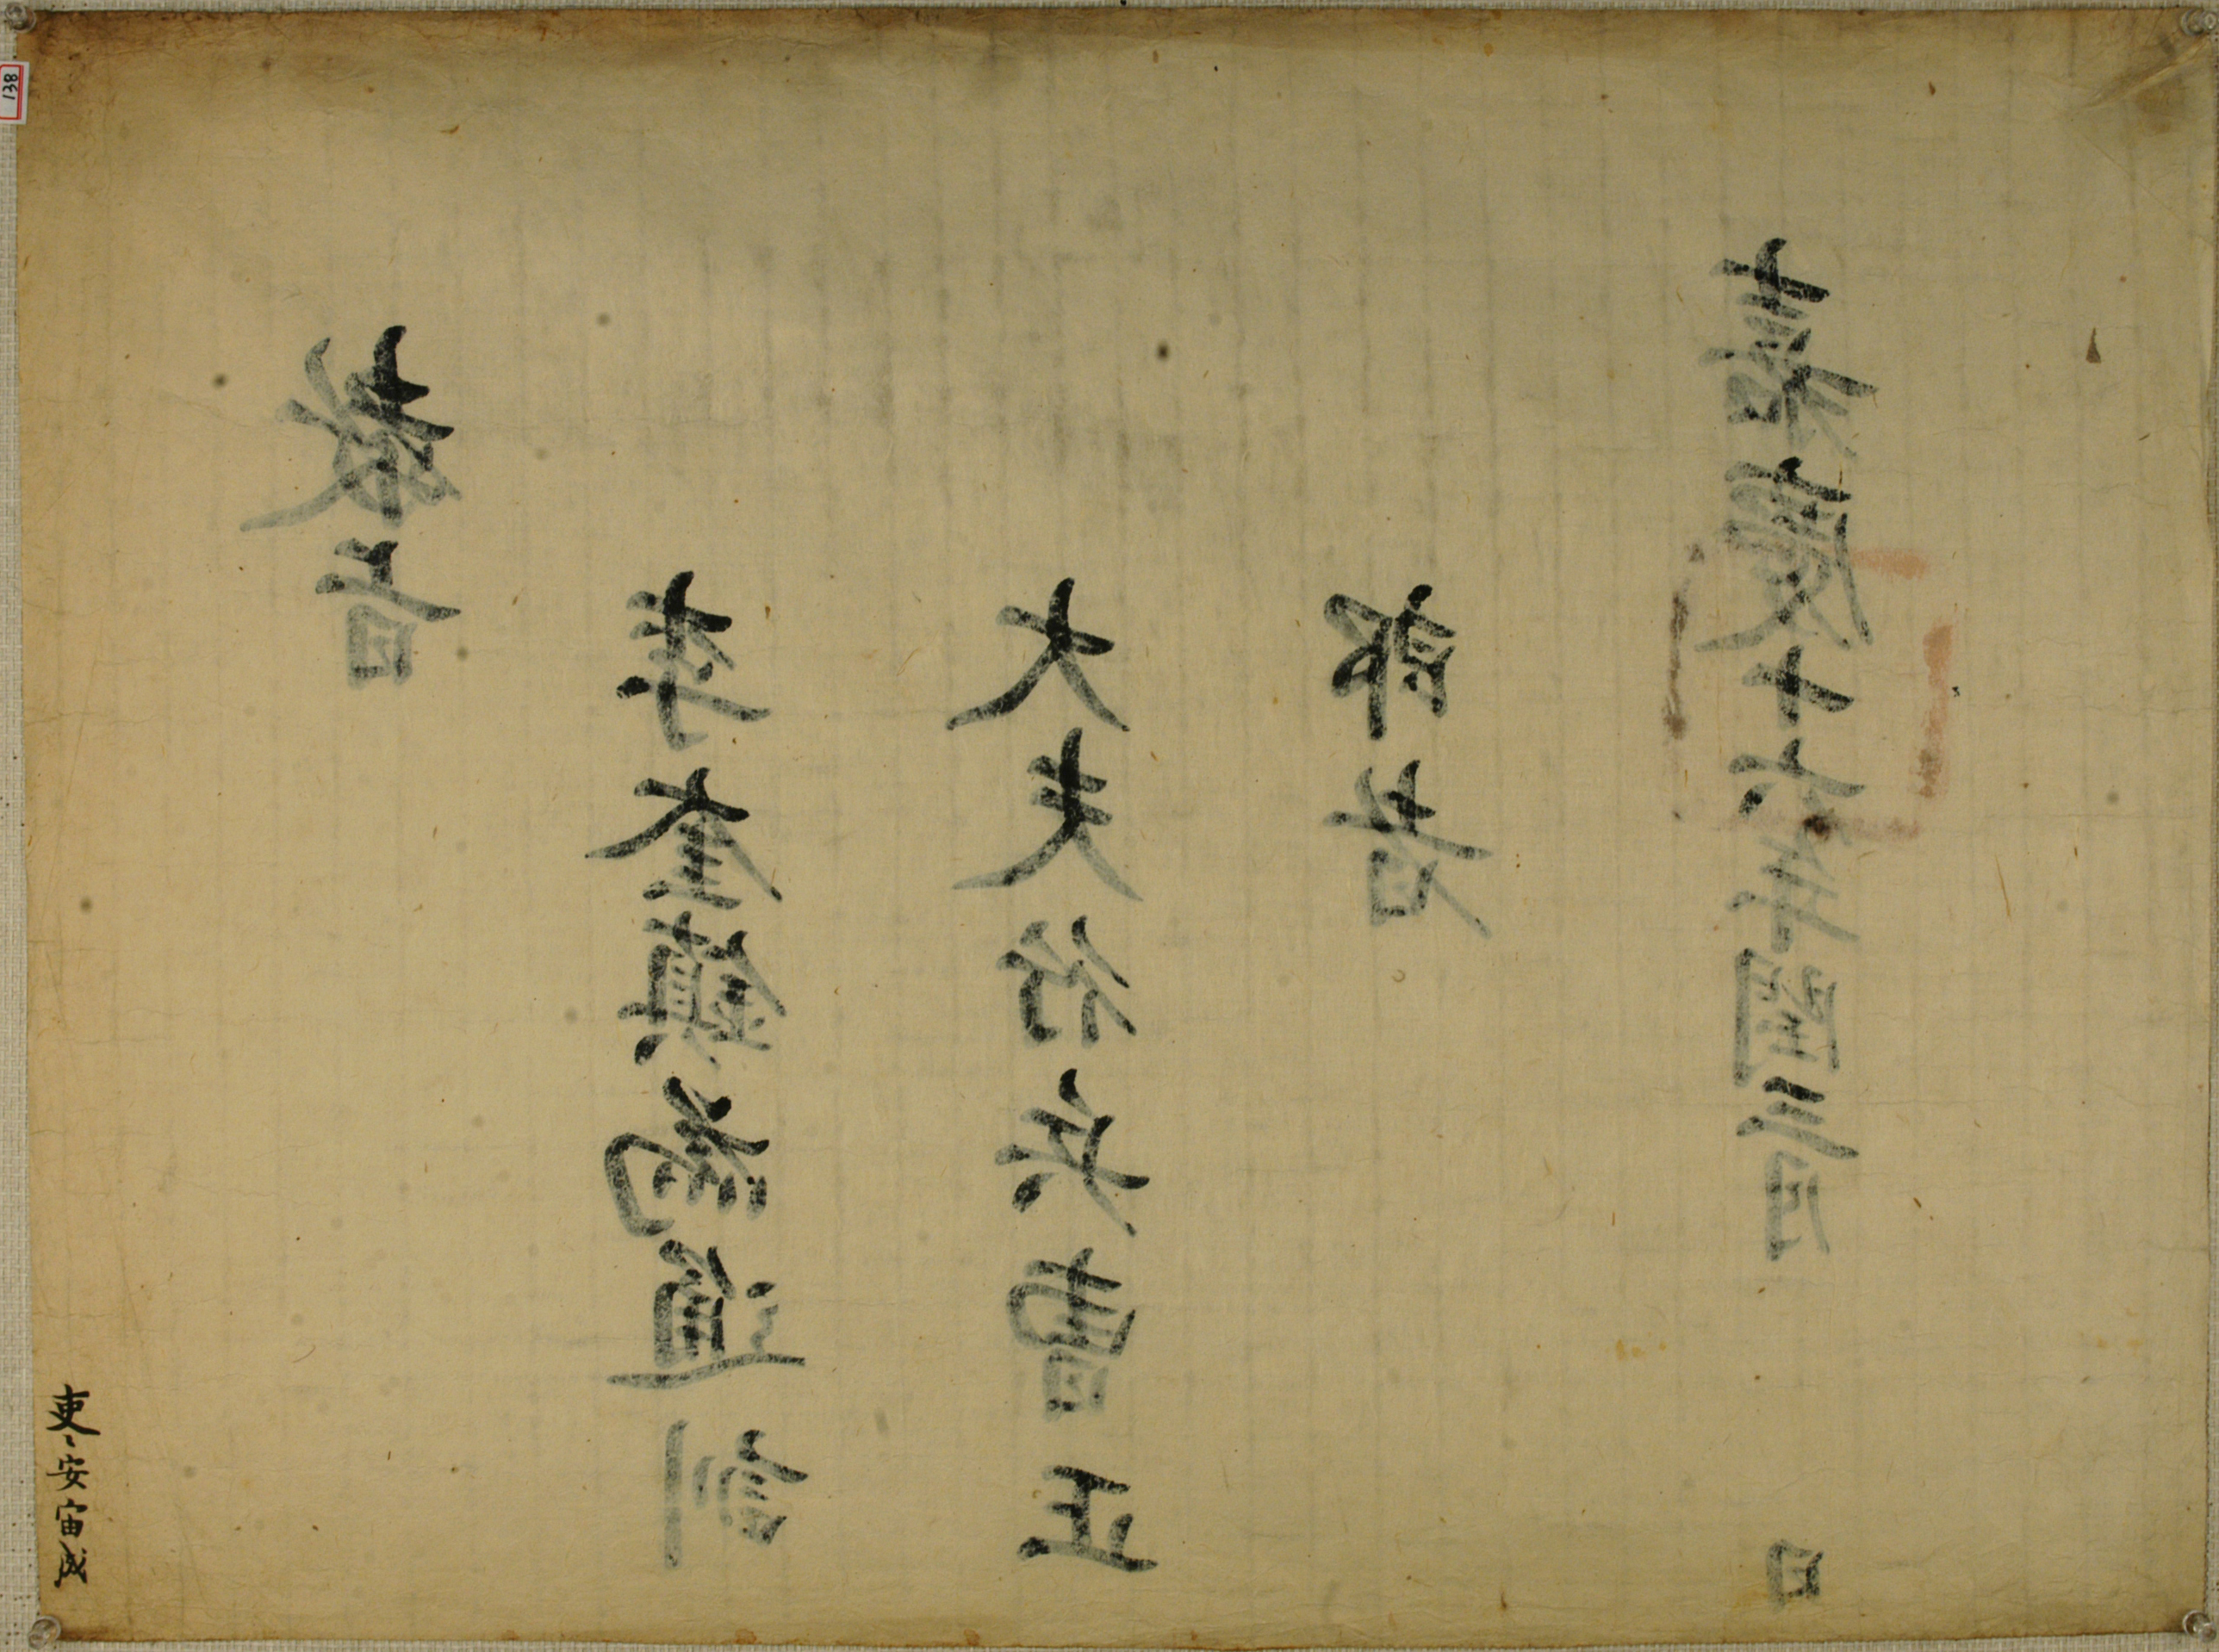 敎旨
李奎鎭爲通訓
大夫行兵曹正
郎者
嘉慶十六年閏三月 日
吏、安宙成
138